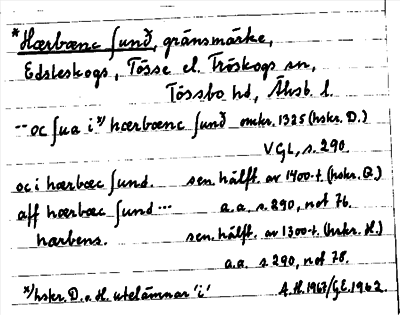 *Hærbænc ſunð, gränsmärke,
Edsleskogs, Tösse el. Fröskogs sn,
Tössbo hd, Älvsb. l.
-- oc ſua i *) hærbænc ſunð omkr. 1325 (hskr. D.)
VGL, s. 290.
oc i hærbæc ſund. sen. hälft. av 1400-t. (hskr. G.)
aff hærbæc ſund --- a.a., s. 290, not 76.
harbens. sen. hälft. av 1300-t. (hskr. H.)
a.a. s 290, not 78.
*) hskr. D. o. H. utelämnar 'i' A.H. 1967/G.E. 1962.